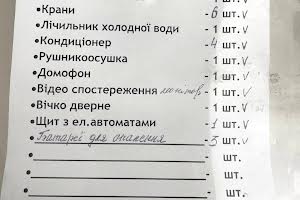 •Крани - 6 шт. V
•Лічильник холодної води - 1 шт. V
•Кондиціонер - 4 шт. V
•Рушникоосушка - 1 шт. V
•Домофон - 1 шт. V
•Відео спостереження монітор - 1 шт. V
•Вічко дверне - 1 шт. V
•Щит з ел.автоматами - 1 шт. V
•Батареї для опалення - 3 шт. V
• - шт.
• - шт.
• - шт.